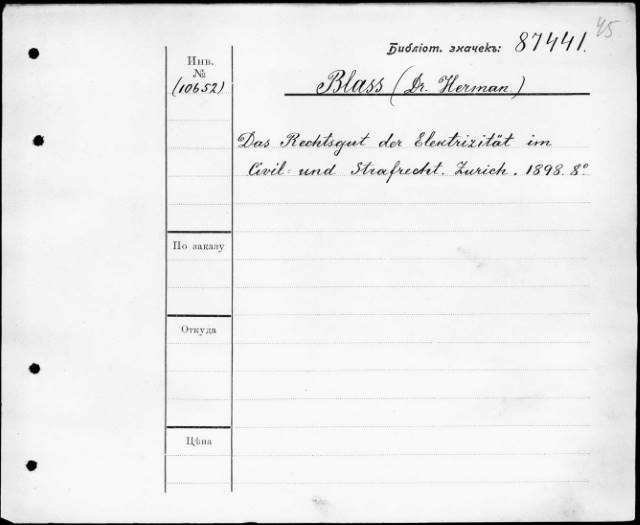 45
Библіот. значекъ: 87441.
Инв.
№
(10652)
Blass (Dr. Herman.)
Das Rechtsgut der Elektrizität im
Civil= und Strafrecht. Zurich. 1898. 8°
По заказу
Откуда
Цѣна